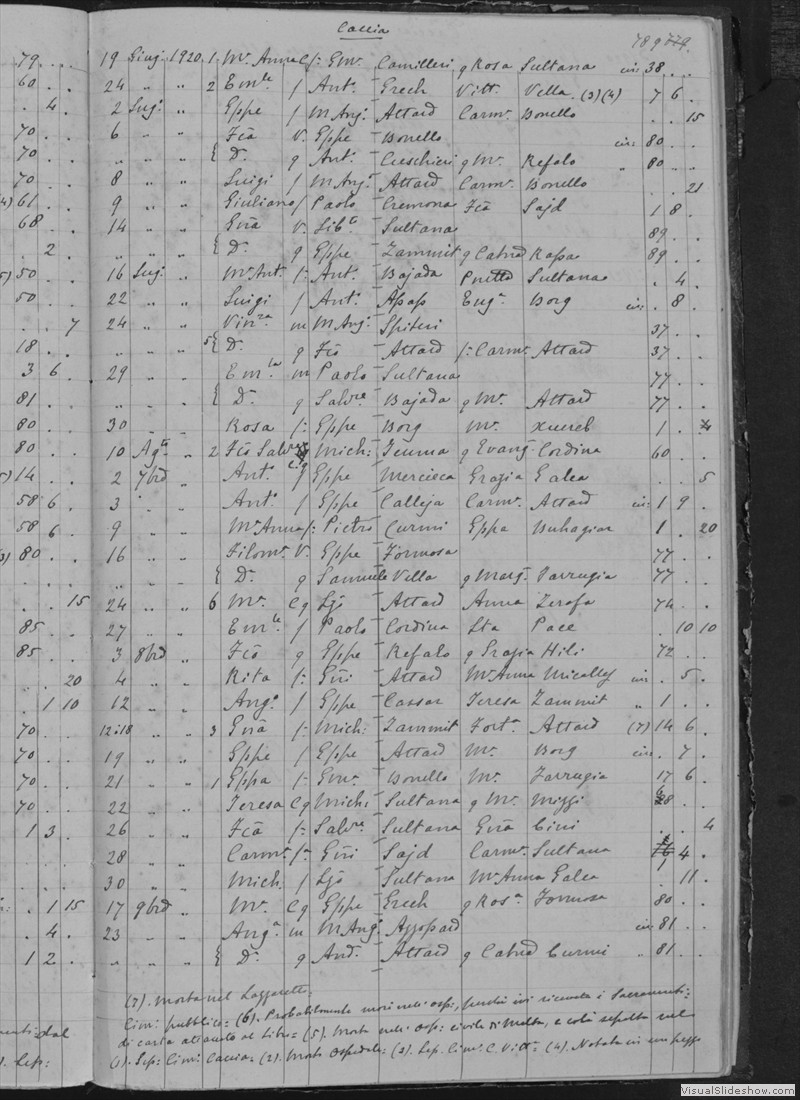 Caccia
789
79 . . . 19 Giug. 1920. 1. Mª Anna Cf: Emᵉ Camilleri q Rosa Sultana in: 38 . .
60 . . . 24 " " 2 Emˡᵉ f Antº Grech Vittª Vella (3)(4) 7 6 .
. 4 . 2 Lug: " Gppe f M Angº Attard Carmª Bonello . . 15
70 . . 6 " " Fcã V. Gppe Bonello in: 80 . .
70 . . " " " { Dª q Antº Ceschieri q Mª Refalo " 80 . .
70 . . 8 " " Luigi f M Angº Attard Carmª Bonello . . 21
4) 61 . . 9 " " Giuliano f Paolo Cremona Fcã Sajd 1 8 .
68 . . 14 " " Gnã V. Libº Sultana 89 . .
. 2 . " " " { Dª q Gppe Zammit q Catnã Kassa 89 . .
5) 50 . . 16 Lug: " Mª Antª f: Antº Bajada Sultana . 4 .
50 . . 22 " " Luigi f Antº Apap Eugª Borg in: . 8 .
. . 7 24 " " Vinᶻᵃ m M Angº Spiteri 37 . .
18 . . " " " 5 { Dª q Fcõ Attard f: Carmª Attard 37 . .
3 6 . 29 " " Emˡᵃ m Paolo Sultana 77 . .
81 . . " " " { Dª q Salvʳᵉ Bajada q Mª Attard 77 . .
80 . . 30 " " Rosa f: Gppe Borg Mª Xuereb 1 . 4
80 . . 10 Agᵗº " 2 Fcõ Salvʳᵉ Mich: Teuma q Evangª Cordina 60 . .
5) 14 . . 2 7brẽ " Antº f Gppe Mercieca Grazia Galea . . 5
58 6 . 3 " " Antº f Gppe Calleja Carmª Attard in: 1 9 .
58 6 . 9 " " Mª Anna f: Pietro Curmi Gppa Buhagiar 1 . 20
3) 80 . . 16 " " Filomª V. Gppe Formosa 77 . .
" " " { Dª q Samuele Vella q Margª Farrugia 77 . .
. . 15 24 " " 6 Mª Cq Ljí Attard Anna Zerafa 74 . .
85 . . 27 " " Emˡᵉ f Paolo Cordina Lta Pace . 10 10
85 . . 3 8brẽ " Fcõ q Gppe Refalo q Grazia Hili 72 . .
. . 20 4 " " Rita f: Gnĩ Attard Mª Anna Micallef in: . 5 .
. 1 10 12 " " Angº f Gppe Cassar Teresa Zammit " 1 . .
70 . . 12:18 " " 3 Gnã f: Mich: Zammit Fortª Attard (7) 14 6 .
70 . . 19 " " Gppe f Gppe Attard Mª Borg in: . 7 .
70 . . 21 " " 1 Gppa f: Emᵉ Bonello Mª Farrugia 17 6 .
70 . . 22 " " Teresa Cq Mich: Sultana q Mª Mizzi 68 . .
1 3 . 26 " " Fcã f: Salvʳᵉ Sultana Gnã Cini . . 4
28 " " Carmª f: Gnĩ Sajd Carmª Sultana 4 .
30 " " Mich: f Ljí Sultana Mª Anna Galea . 11 .
. 1 15 17 9brẽ " Mª Cq Gppe Grech q Rosª Formosa 80 . .
. 4 . 23 " " Angª m M Angº Azzopard in: 81 . .
1 2 . " " " { Dª q Andª Attard q Catnã Curmi " 81 . .
(7). Morta nel Lazzaretto
Cim: pubblico = (6). Probabilmente morì nell' osp:, perchè ivi ricevette i Sacramenti:
di carta attaccato al Libro = (5). Morto nell' Osp: civile di Malta, e colà sepolto nel
(1). Sep: Cim: Caccia = (2). Morto Ospedale: (3). Sep. Cim: C. Vittª = (4). Notata in un pezzo
dal
). Sep:
VisualSlideshow.com